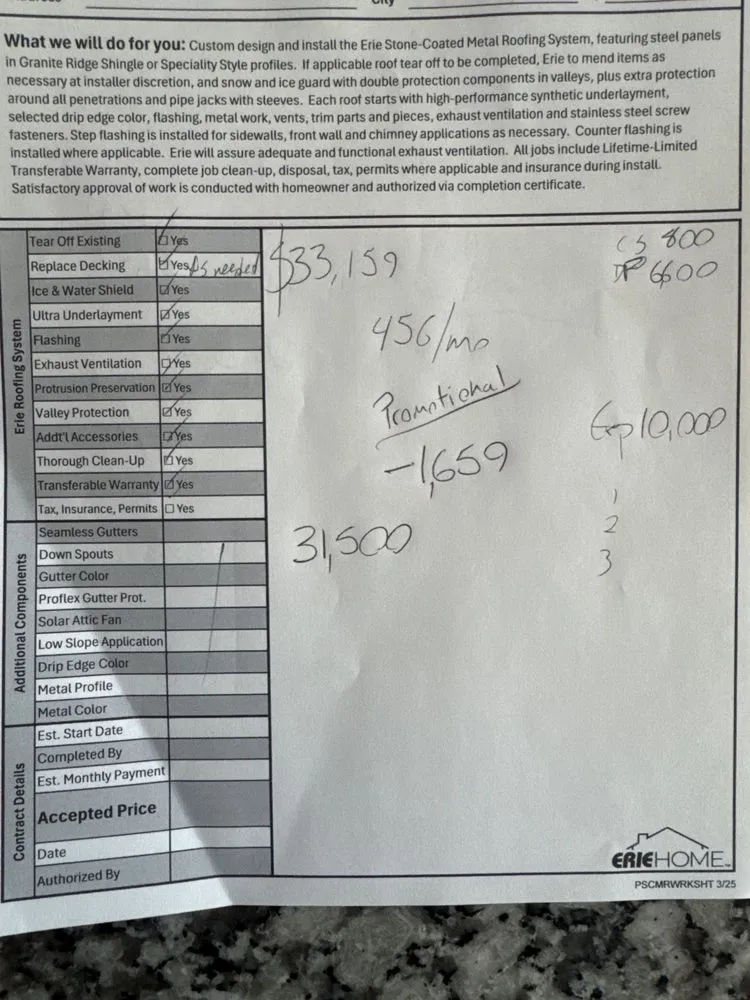 City
What we will do for you: Custom design and install the Erie Stone-Coated Metal Roofing System, featuring steel panels
in Granite Ridge Shingle or Speciality Style profiles. If applicable roof tear off to be completed, Erie to mend items as
necessary at installer discretion, and snow and ice guard with double protection components in valleys, plus extra protection
around all penetrations and pipe jacks with sleeves. Each roof starts with high-performance synthetic underlayment,
selected drip edge color, flashing, metal work, vents, trim parts and pieces, exhaust ventilation and stainless steel screw
fasteners. Step flashing is installed for sidewalls, front wall and chimney applications as necessary. Counter flashing is
installed where applicable. Erie will assure adequate and functional exhaust ventilation. All jobs include Lifetime-Limited
Transferable Warranty, complete job clean-up, disposal, tax, permits where applicable and insurance during install.
Satisfactory approval of work is conducted with homeowner and authorized via completion certificate.
Erie Roofing System
Tear Off Existing Yes
Replace Decking Yes As needed
Ice & Water Shield Yes
Ultra Underlayment Yes
Flashing Yes
Exhaust Ventilation Yes
Protrusion Preservation Yes
Valley Protection Yes
Addt'l Accessories Yes
Thorough Clean-Up Yes
Transferable Warranty Yes
Tax, Insurance, Permits Yes
Additional Components
Seamless Gutters
Down Spouts
Gutter Color
Proflex Gutter Prot.
Solar Attic Fan
Low Slope Application
Drip Edge Color
Metal Profile
Metal Color
Contract Details
Est. Start Date
Completed By
Est. Monthly Payment
Accepted Price
Date
Authorized By
$33,159
456/mo
Promotional
-1,659
31,500
CS 800
DP 6600
Exp 10,000
1
2
3
ERIEHOME
PSCMRWRKSHT 3/25